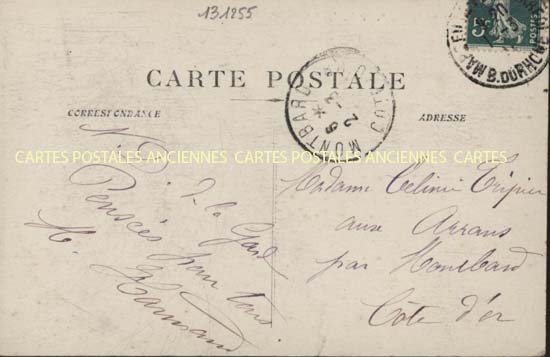 131255
5
POSTES
CARTE POSTALE
CORRESPONDANCE
ADRESSE
MONTBARD
COTE D'OR
CARTES POSTALES ANCIENNES CARTES POSTALES ANCIENNES CARTES POSTALES ANCIENNES
à la Gard
Pensées pour tous
M.
Madame Célinie Tripier
aux Arrans
par Montbard
Côte d'or